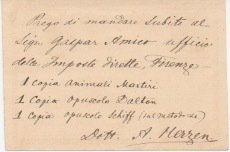 Prego di mandare subito al
Sign. Gaspar Amico ufficio
delle Imposte Dirette Firenze
1 copia Animali Martiri
1 copia opuscolo Dalton
1 copia opuscolo Schiff (sul metodo
Dott. A. Herzen